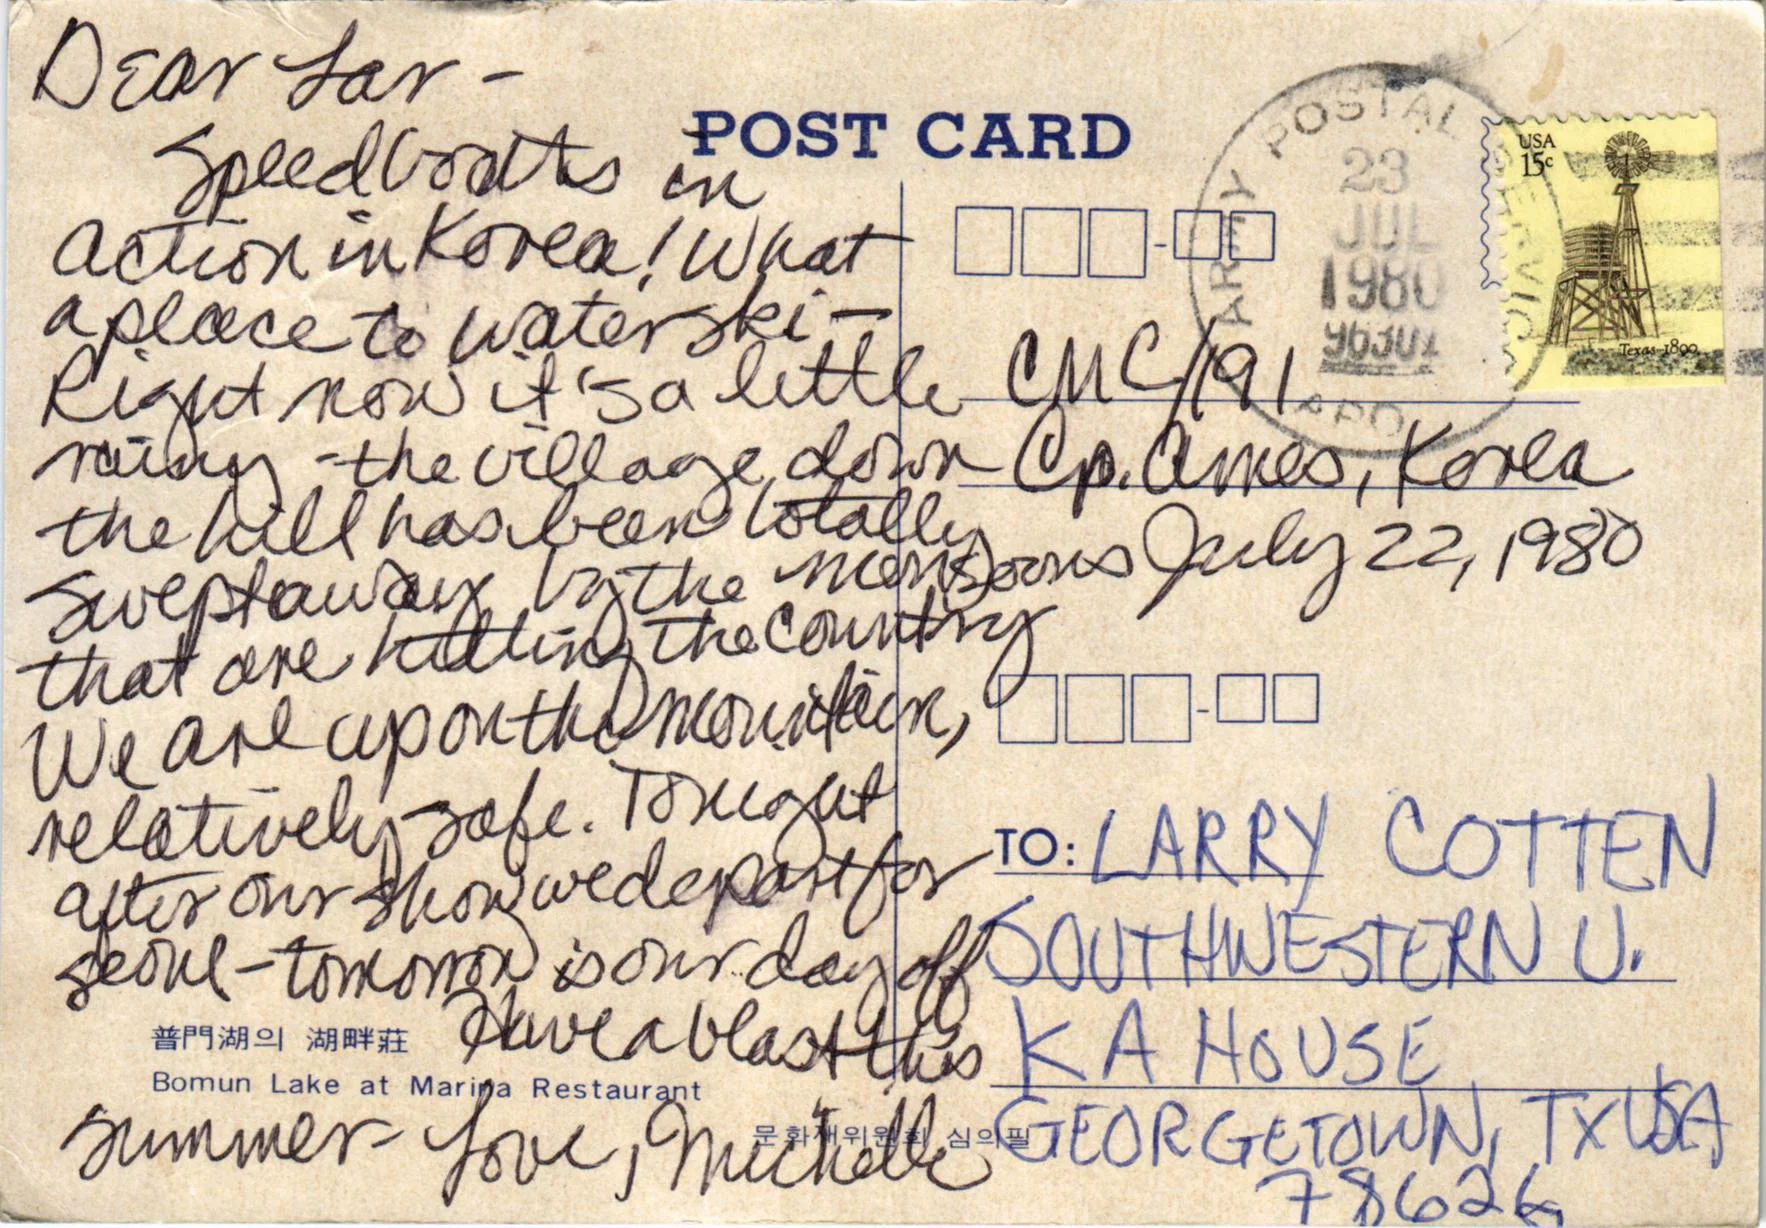 Dear Lar -
Speedboats in
action in Korea! What
a place to waterski -
Right now it's a little
rainy - the village down
the hill has been totally
swept away by the monsoons
that are hitting the country
We are up on the mountain,
relatively safe. Tonight
after our show we depart for
Seoul - tomorrow is our day off
Have a blast this
summer - Love, Michelle
普門湖의 湖畔莊
Bomun Lake at Marina Restaurant
문화재위원회 심의필
POST CARD
ARMY POSTAL SERVICE
23
JUL
1980
96301
APO
USA
15c
Texas 1890
CMC/191
Cp. Ames, Korea
July 22, 1980
TO: LARRY COTTEN
SOUTHWESTERN U.
KA HOUSE
GEORGETOWN, TX USA
78626